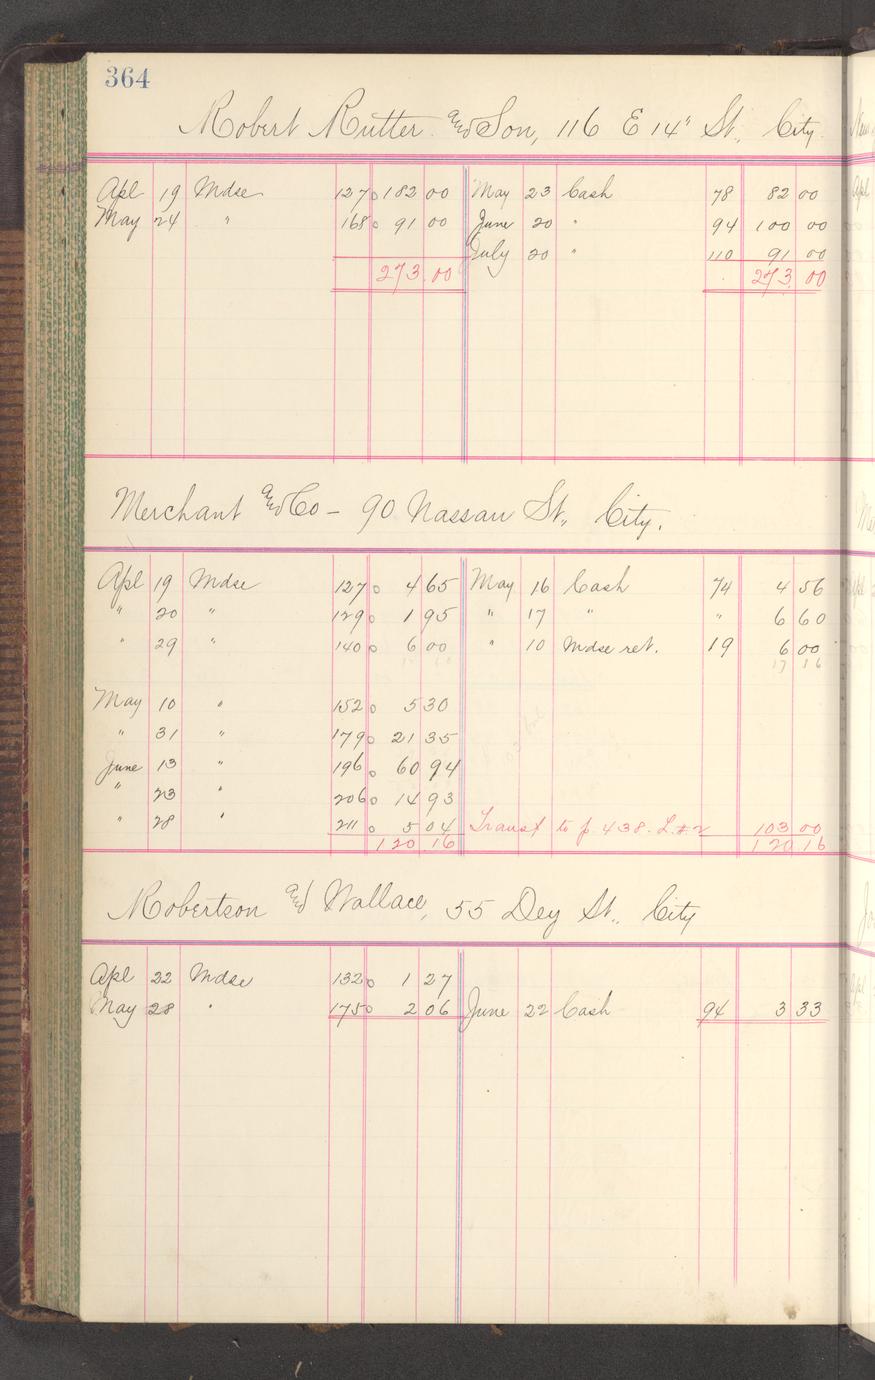 364
Robert Rutter and Son, 116 E 14" St., City.
Apl 19 Mdse 127 182 00 May 23 Cash 78 82 00
May 24 " 168 91 00 June 20 " 94 100 00
July 20 " 110 91 00
273.00 273.00
Merchant and Co - 90 Nassau St., City.
Apl 19 Mdse 127 4 65 May 16 Cash 74 4 56
" 20 " 129 1 95 " 17 " " 6 60
" 29 " 140 6 00 " 10 Mdse ret. 19 6 00
17 16
May 10 " 152 5 30
" 31 " 179 21 35
June 13 " 196 60 94
" 23 " 206 14 93
" 28 " 211 5 04 Transf to p. 438. L.#2 103 00
120.16 120 16
Robertson and Wallace, 55 Dey St., City
Apl 22 Mdse 132 1 27
May 28 " 175 2 06 June 22 Cash 94 3 33